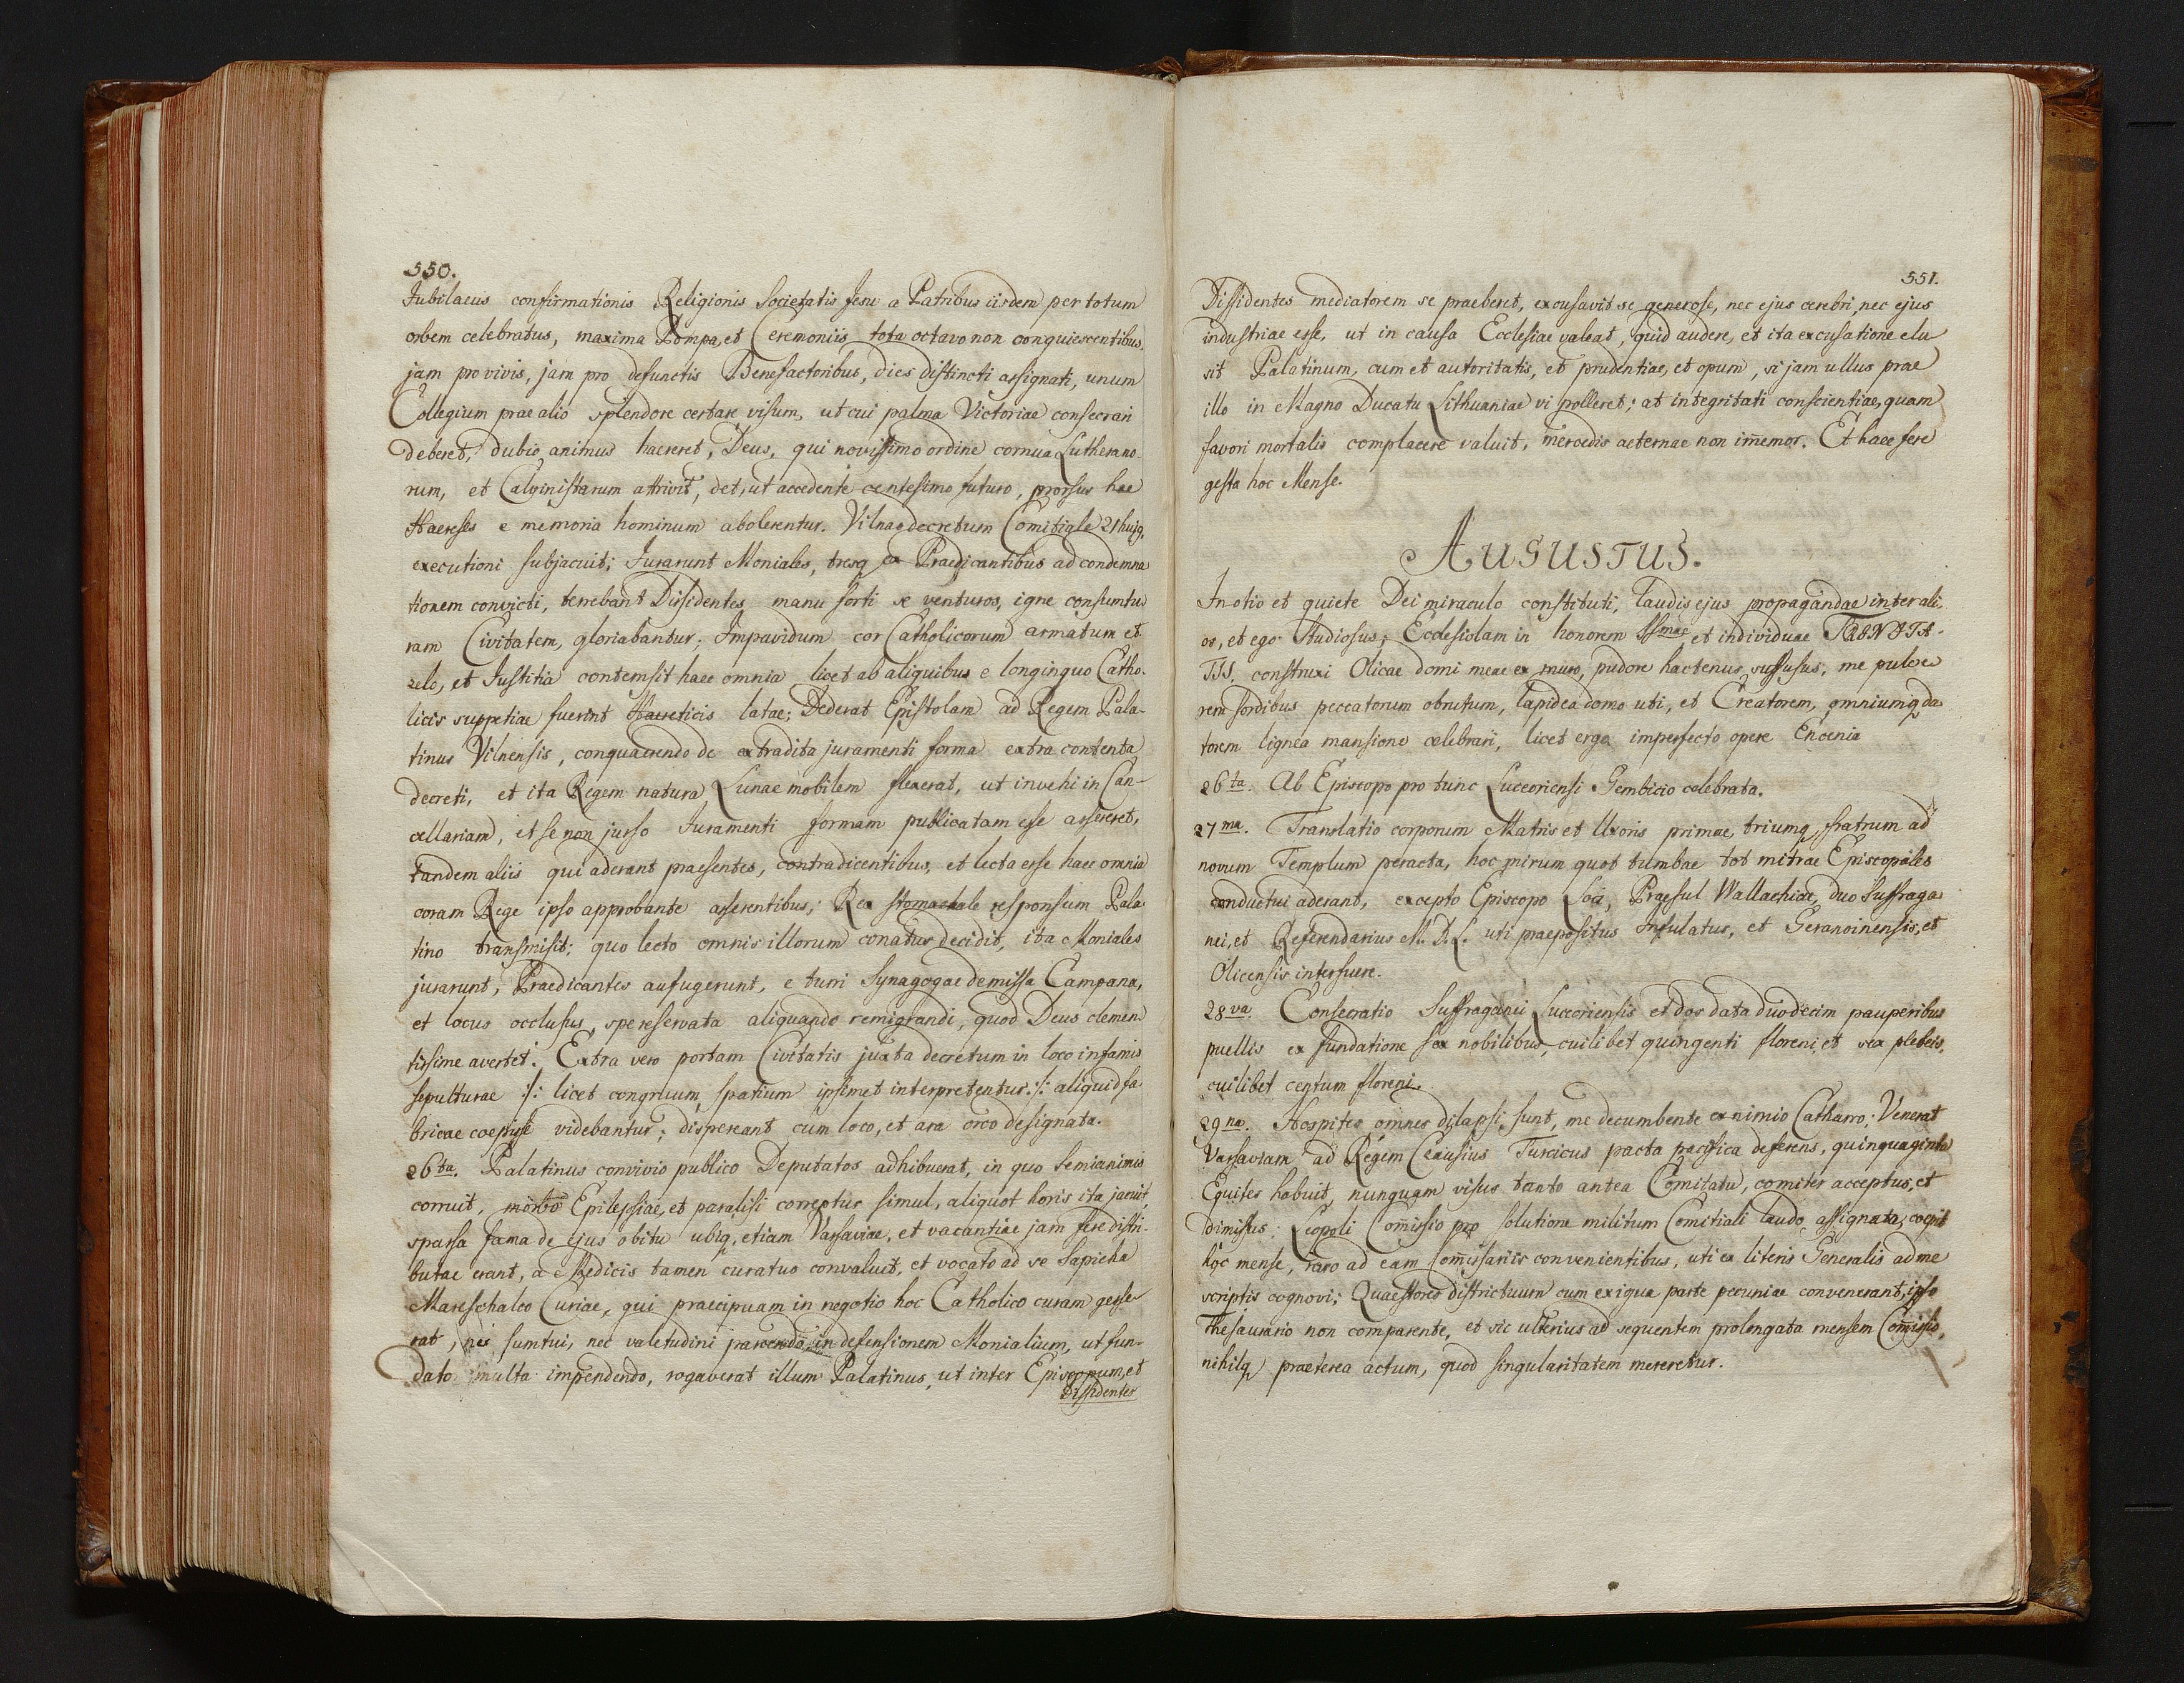 550.
Jubilaeus confirmationis Religionis Societatis Jesu a Patribus iisdem per totum
orbem celebratus, maxima Pompa, et Ceremoniis tota octavo non conquiescentibus,
jam pro vivis, jam pro defunctis Benefactoribus, dies distincti assignati, unum
Collegium prae alio splendore certare visum, ut cui palma Victoriae consecrari
deberet, dubio animus haereret, Deus, qui novissimo ordine cornua Lutherano-
rum, et Calvinistarum attrivit, det, ut accedente centesimo futuro, prorsus hae
Haereses e memoria hominum abolerentur. Vilnae decretum Comitiale 21 hujq,
executioni subjacuit; Jurarunt Moniales, tresq ex Praedicantibus ad condemna
tionem convicti, terrebant Dissidentes manu forti se venturos, igne consumtu
ram Civitatem, gloriabantur; Impavidum cor Catholicorum armatum et
zelo, et Justitia contemsit haec omnia licet ab aliquibus e longinquo Catho-
licis suppetiae fuerint Haereticis latae; Dederat Epistolam ad Regem Pala-
tinus Vilnensis, conquaerendo de extradita juramenti forma extra contenta
decreti, et ita Regem natura Lunae mobilem flexerat, ut invehi in Can-
cellariam, et se non jusso Juramenti formam publicatam esse assereret,
tandem aliis qui aderant praesentes, contradicentibus, et lecta esse haec omnia
coram Rege ipso approbante asserentibus; Rex stomachale responsum Pala
tino transmisit: quo lecto omnis illorum conatus decidit, ita Moniales
jurarunt, Praedicantes aufugerunt, e turri Synagogae demissa Campana,
et locus occlusus, spe reservata aliquando remigrandi, quod Deus clemen
tissime avertet. Extra vero portam Civitatis juxta decretum in loco infamis
sepulturae :/: licet congruum spatium ipsimet interpretentur :/: aliquid fa
bricae coepisse videbantur; dispereant cum loco, et ara orco designata.
26ta. Palatinus convivio publico Deputatos adhibuerat, in quo semianimis
corruit, morbo Epilepsiae, et paralisi correptus simul, aliquot horis ita jacuit,
sparsa fama de ejus obitu ubiq, etiam Varsaviae, et vacantiae jam fere distri-
butae erant, a Medicis tamen curatus convaluit, et vocato ad se Sapieha
Mareschalco Curiae, qui praecipuam in negotio hoc Catholico curam gesse-
rat, nec sumtui, nec valetudini parcendo, in defensionem Monialium, ut fun-
dato multa impendendo, rogaverat illum Palatinus, ut inter Episcopum, et
Dissidentes
551.
Dissidentes mediatorem se praeberet, excusavit se generose, nec ejus cerebri, nec ejus
industriae esse, ut in causa Ecclesiae valeat, quid audere, et ita excusatione elu
sit Palatinum, cum et autoritatis, et prudentiae, et opum, si jam ullus prae
illo in Magno Ducatu Lithuaniae vi polleret; at integritati conscientiae, quam
favori mortalis complacere valuit, mercedis aeternae non im̄emor. Et haec fere
gesta hoc Mense.
AUGUSTUS.
In otio et quiete Dei miraculo constituti, laudis ejus propagandae inter ali-
os, et ego studiosus, Ecclesiolam in honorem SSmae et individuae TRINITA-
TIS, construxi Olicae domi meae ex muro, pudore hactenus suffusus, me pulve
rem sordibus peccatorum obrutum, lapidea domo uti, et Creatorem, omniumq da
torem lignea mansione celebrari, licet ergo imperfecto opere Encenia
26ta. Ab Episcopo pro tunc Luceoriensi Gembicio celebrata.
27ma. Translatio corporum Matris et Uxoris primae, triumq fratrum ad
novum Templum peracta, hoc mirum quot tumbae tot mitrae Episcopales
conductui aderant, excepto Episcopo Loci, Praesul Wallachiae, duo Suffraga
nei, et Referendarius M. D. L. uti praepositus Infulatus, et Geranoinensis, et
Olicensis interfuere.
28va. Consecratio Suffraganii Luceoriensis et dos data duodecim pauperibus
puellis ex fundatione sex nobilibus, cuilibet quingenti floreni, et sex plebeis,
cuilibet centum floreni.
29na. Hospites omnes dilapsi sunt, me decumbente ex nimio Catharro; Venerat
Varsaviam ad Regem Czausius Turcicus pacta pacifica deferens, quinquaginta
Equites habuit, nunquam visus tanto antea Comitatu, comiter acceptus, et
dimissus; Leopoli Com̄issio pro solutione militum Comitiali laudo assignata, coepit
hoc mense, raro ad eam Com̄issariis convenientibus, uti ex literis Generalis ad me
scriptis cognovi; Quaestores districtuum cum exigua parte pecuniae convenerant, ipso
Thesaurario non comparente, et sic ulterius ad sequentem prolongata mensem Com̄issio,
nihilq praeterea actum, quod singularitatem mereretur.